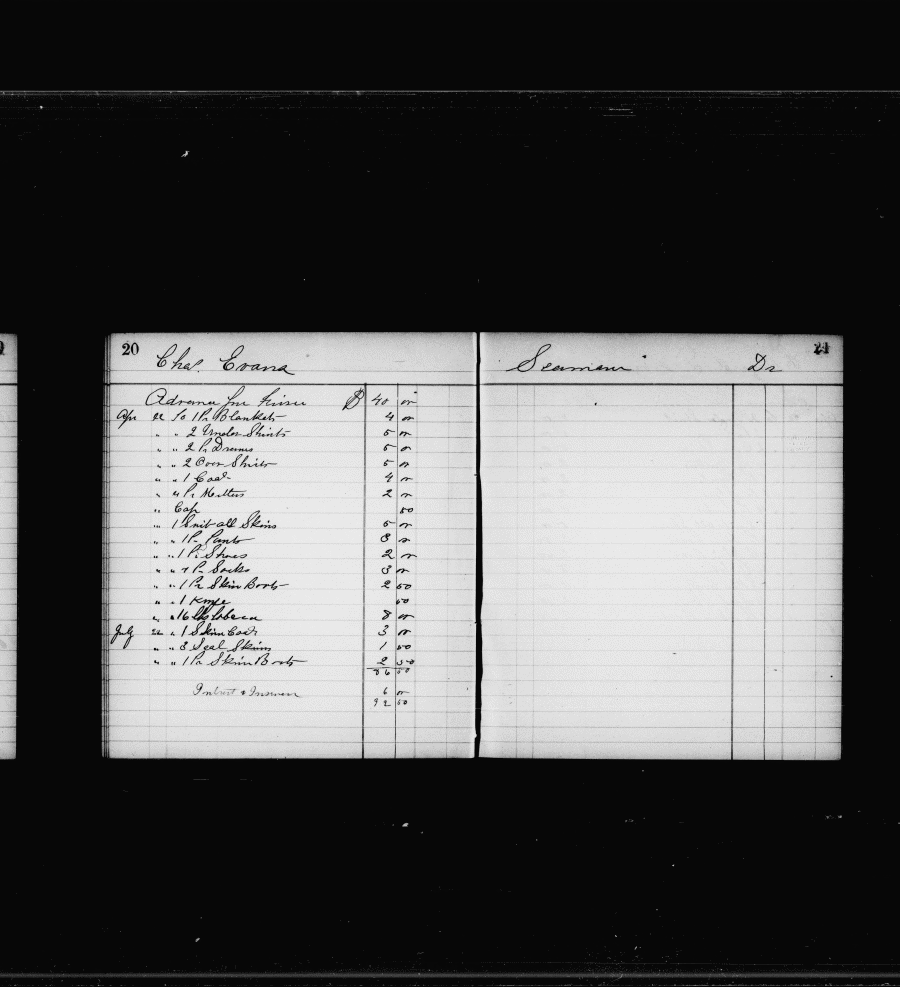 20
Chas. Evans
Advance for
$ 40 00
Apr 22 To 1 Pr Blankets 4 00
" " 2 Under Shirts 5 00
" " 2 Pr Drawers 5 00
" " 2 Over Shirts 5 00
" " 1 Coat 4 00
" " Pr Mittens 2 00
" Cap 50
" 1 Suit all Skins 5 00
" " 1 Pr Pants 3 00
" " 1 Pr Shoes 2 00
" " 4 Pr Socks 3 00
" " 1 Pr Skin Boots 2 50
" " 1 Knife 50
" " 16 lbs Tobacco 8 00
July 22 " 1 Skin Coat 3 00
" " 3 Seal Skins 1 50
" " 1 Pr Skin Boots 2 50
86 50
Intrest & Insurance 6 00
92 50
Seaman
Dr
21